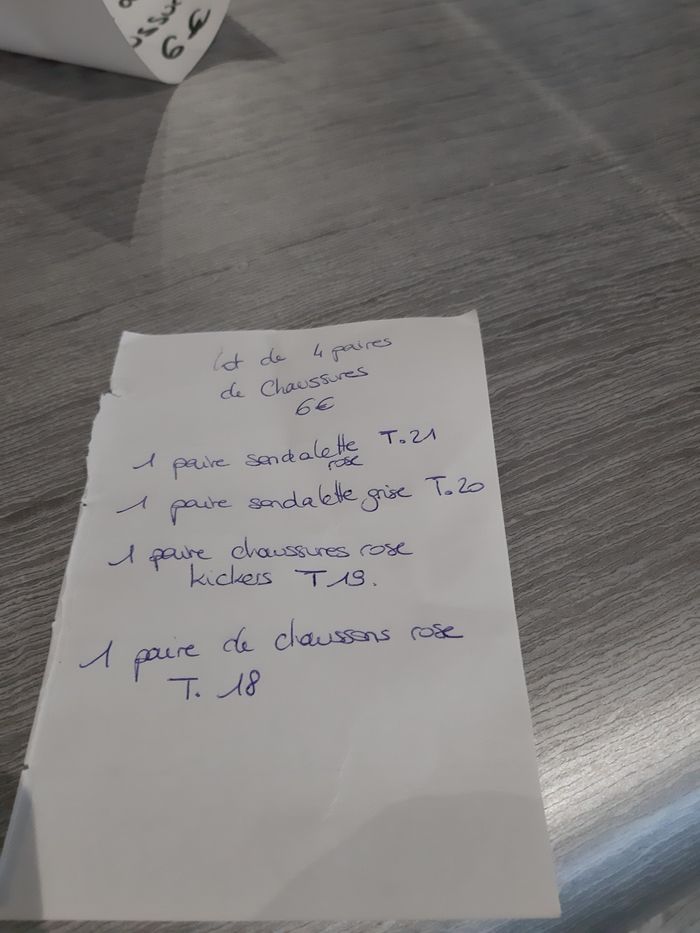 6€
lot de 4 paires
de Chaussures
6€
1 paire sandalette T.21
rose
1 paire sandalette grise T.20
1 paire chaussures rose
kickers T19.
1 paire de chaussons rose
T. 18